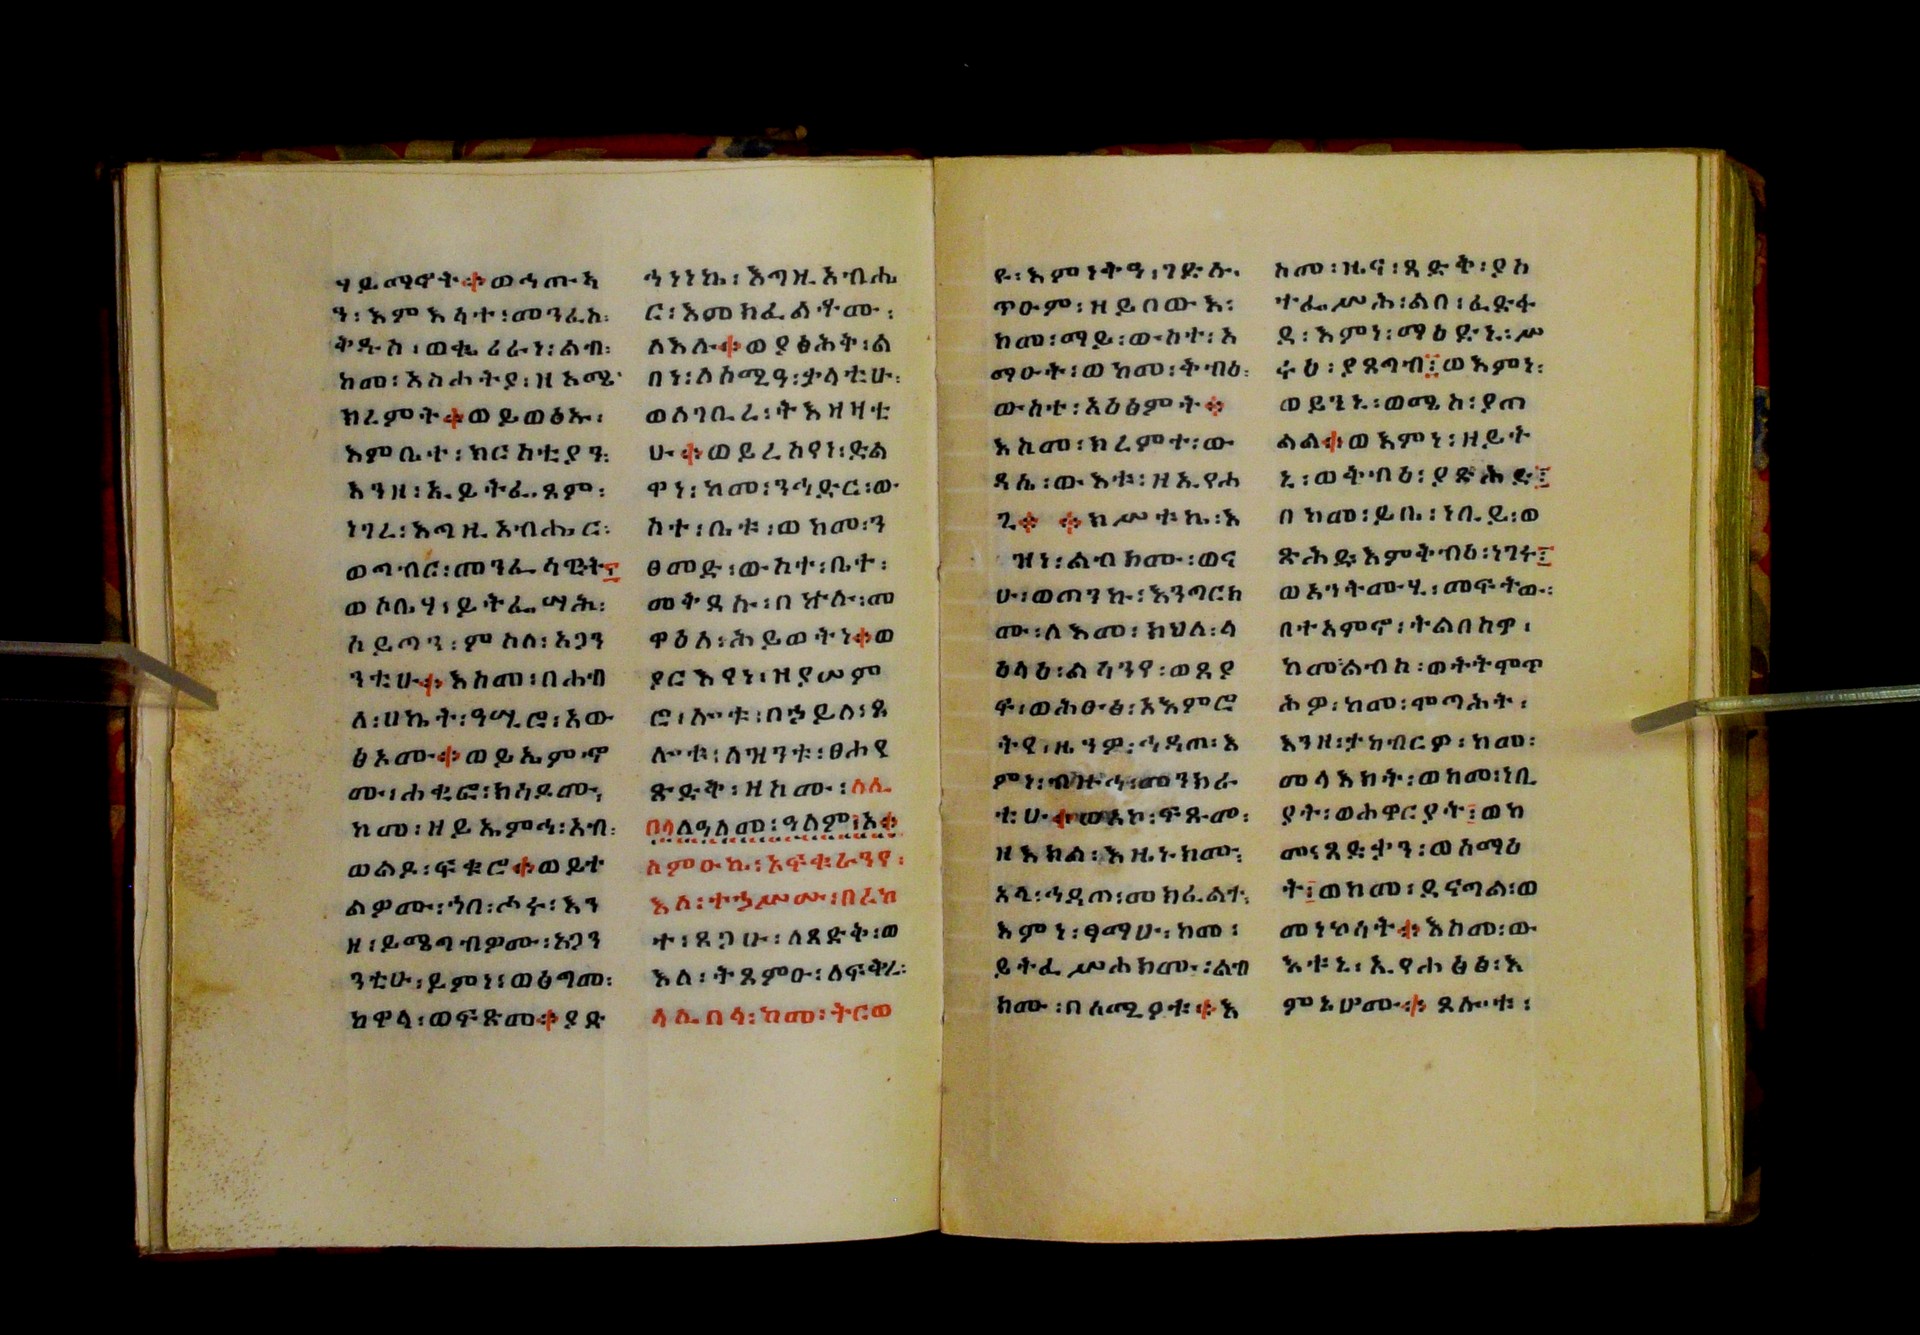 ሃይማኖት። ወኅጡኣ
ን፡ እምእላተ፡ መንፈስ፡
ቅዱስ፡ ወቂሪራነ፡ ልብ፡
ከመ፡ አስሐትያ፡ ዘአሜ
ክረምት። ወይወፅኡ፡
እምቤተ፡ ክርስቲያን፡
እንዘ፡ ኢይትፌጸም፡
ነገረ፡ እግዚአብሔር፡
ወግብር፡ መንፈሳዊት።
ወሶቤሃ፡ ይትፌሣሕ፡
ሰይጣን፡ ምስለ፡ አጋን
ንቲሁ። እስመ፡ በሐብ
ለ፡ ሀኬት፡ ዓሚሮ፡ አው
ፅኦሙ። ወይኤምኖ
ሙ፡ ሐቂፎ፡ ክሳዶሙ፡
ከመ፡ ዘይኤምኅ፡ አብ፡
ወልዶ፡ ፍቁሮ። ወይተ
ልዎሙ፡ ኀበ፡ ሖሩ፡ እን
ዘ፡ ይሜግብዎሙ፡ አጋን
ንቲሁ፡ ይምነ፡ ወፅግመ፡
ከዋላ፡ ወፍጽመ። ያድ
ኅነነኬ፡ እግዚአብሔ
ር፡ እመክፈልቶሙ፡
ለእሉ። ወያፅሕቅ፡ ል
በነ፡ ለሰሚዓ፡ ቃላቲሁ፡
ወለገቢረ፡ ትእዛዛቲ
ሁ። ወይረስየነ፡ ድል
ዋነ፡ ከመ፡ ንኅድር፡ ው
ስተ፡ ቤቱ፡ ወከመ፡ ን
ፀመድ፡ ውስተ፡ ቤተ፡
መቅደሱ፡ በኵሉ፡ መ
ዋዕለ፡ ሕይወትነ። ወ
ያርእየነ፡ ዘያሠም
ሮ፡ ሎቱ፡ በኃይለ፡ ጸ
ሎቱ፡ ለዝንቱ፡ ፀሐየ
ጽድቅ፡ ዘከሙ፡ ሰሌ
በላ ለዓለመ፡ ዓለም፡ አ።
ስምዑኬ፡ አፍቁራንየ፡
እለ፡ ተኃሥሡ፡ በረከ
ተ፡ ጸጋሁ፡ ለጻድቅ፡ ወ
እለ፡ ትጸምዑ፡ ለፍቅረ፡
ላሌበላ፡ ከመ፡ ትርወ
ዩ፡ እምነቅዓ፡ ገድሉ፡
ጥዑም፡ ዘይበውእ፡
ከመ፡ ማይ፡ ውስተ፡ አ
ማዑት፡ ወከመ፡ ቅብዕ፡
ውስተ፡ አዕፅምት።
እስመ፡ ክረምተ፡ ው
ዳሴ፡ ውእቱ፡ ዘኢየሐ
ጊ። ። ክሥቱኬ፡ እ
ዝነ፡ ልብክሙ፡ ወና
ሁ፡ ወጠንኩ፡ እንግርክ
ሙ፡ ለእመ፡ ክህለ፡ ላ
ዕላዕ፡ ልሳንየ፡ ወጸያ
ፍ፡ ወሕፀፀ፡ አእምሮ
ትየ፡ ዜንዎ፡ ኅዳጠ፡ እ
ምነ፡ ብዙኅ፡ መንክራ
ቲሁ። ወእኮ፡ ፍጹመ፡
ዘእክል፡ እዜኑክሙ፡
አላ፡ ኅዳጠ፡ መክፈልተ፡
እምነ፡ ፃማሁ፡ ከመ፡
ይትፈሥሐክሙ፡ ልብ
ክሙ፡ በሰሚዖቱ። እ
ስመ፡ ዜና፡ ጻድቅ፡ ያስ
ተፌሥሕ፡ ልበ፡ ፈድፋ
ደ፡ እምነ፡ ማዕድኒ፡ ሥ
ሩዕ፡ ያጸግብ። ወእምነ፡
ወይኒ፡ ወሜስ፡ ያጠ
ልል። ወእምነ፡ ዘይት
ኒ፡ ወቅብዕ፡ ያጽሕድ።
በከመ፡ ይቤ፡ ነቢይ፡ ወ
ጽሕደ፡ እምቅብዕ፡ ነገሩ።
ወአንትሙሂ፡ መፍትው፡
በተአምኖ፡ ትልበስዎ፡
ከመ፡ ልብስ፡ ወትትሞጥ
ሕዎ፡ ከመ፡ ሞጣሕት፡
እንዘ፡ ታከብርዎ፡ ከመ፡
መላእክት፡ ወከመ፡ ነቢ
ያት፡ ወሐዋርያት። ወከ
መ፡ ጻድቃን፡ ወሰማዕ
ት። ወከመ፡ ደናግል፡ ወ
መነኮሳት። እስመ፡ ው
እቱኒ፡ ኢየሐፅፅ፡ እ
ምኔሆሙ። ጸሎቱ፡